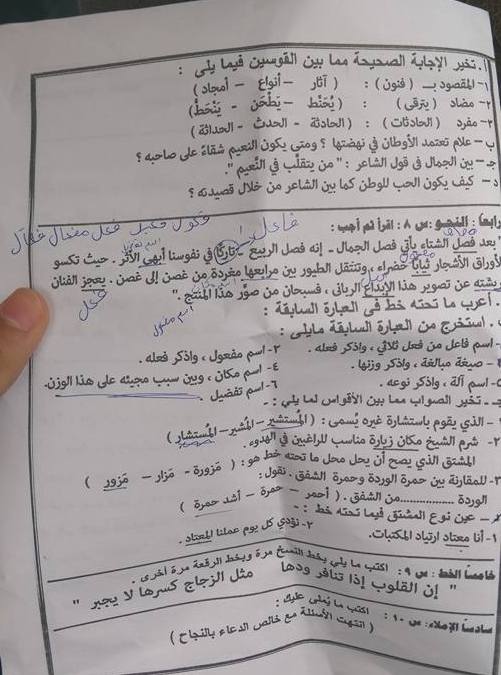 أ. تخير الإجابة الصحيحة مما بين القوسين فيما يلى :
١- المقصود بـ ( فنون ) : ( آثار – أنواع – أمجاد )
٢- مضاد ( يترقى ) : ( يُحَنط – يَطْحَن – يَنْحَطُّ )
٣- مفرد ( الحادثات ) : ( الحادثة – الحدث – الحداثة )
ب – علام تعتمد الأوطان في نهضتها ؟ ومتى يكون النعيم شقاءً على صاحبه ؟
جـ - بين الجمال فى قول الشاعر : " من يتقلَّب في النَّعيم ".
د – كيف يكون الحب للوطن كما بين الشاعر من خلال قصيدته ؟
رابعا : النحو : س ٨ : اقرأ ثم أجب :
بعد فصل الشتاء يأتي فصل الجمال - إنه فصل الربيع – تاركًا في نفوسنا أبهى الأثر . حيث تكسو
الأوراق الأشجار ثيابًا خضراء ، وتنتقل الطيور بين مرابعها مغردة من غصن إلى غصن . يعجز الفنان
ريشته عن تصوير هذا الإبداع الربانى ، فسبحان من صوَّر هذا المنتج . "
أعرب ما تحته خط فى العبارة السابقة :
استخرج من العبارة السابقة مايلى :
اسم فاعل من فعل ثلاثي ، واذكر فعله . ٢- اسم مفعول ، واذكر فعله .
صيغة مبالغة ، واذكر وزنها . ٤- اسم مكان ، وبين سبب مجيئه على هذا الوزن.
٥- اسم آلة ، واذكر نوعه . ٦- اسم تفضيل .
جـ - تخير الصواب مما بين الأقواس لما يلي : -
١- الذي يقوم باستشارة غيره يُسمى : ( المُستشير – المُشير – المُستشار )
٢- شرم الشيخ مكان زيارة مناسب للراغبين في الهدوء .
المشتق الذي يصح أن يحل محل ما تحته خط هو : ( مَزورة – مَزار – مَزور )
٣- للمقارنة بين حمرة الوردة وحمرة الشفق . نقول :
الوردة ................من الشفق . ( أحمر – حمرة – أشد حمرة )
عين نوع المشتق فيما تحته خط : -
١- أنا معتاد ارتياد المكتبات. ٢- نؤدي كل يوم عملنا المعتاد .
خامسا الخط : س ٩ : اكتب ما يلي بخط النسخ مرة وبخط الرقعة مرة أخرى .
" إن القلوب إذا تنافر ودها مثل الزجاج كسرها لا يجبر "
سادسا الإملاء : س ١٠ : اكتب ما يُملى عليك :
( انتهت الأسئلة مع خالص الدعاء بالنجاح )